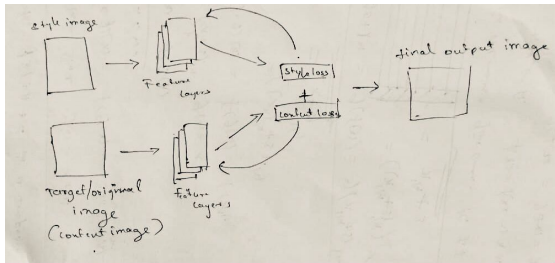 style image
Feature
layers
style loss
+
content loss
final output image
Target/original
image
(content image)
feature
layers